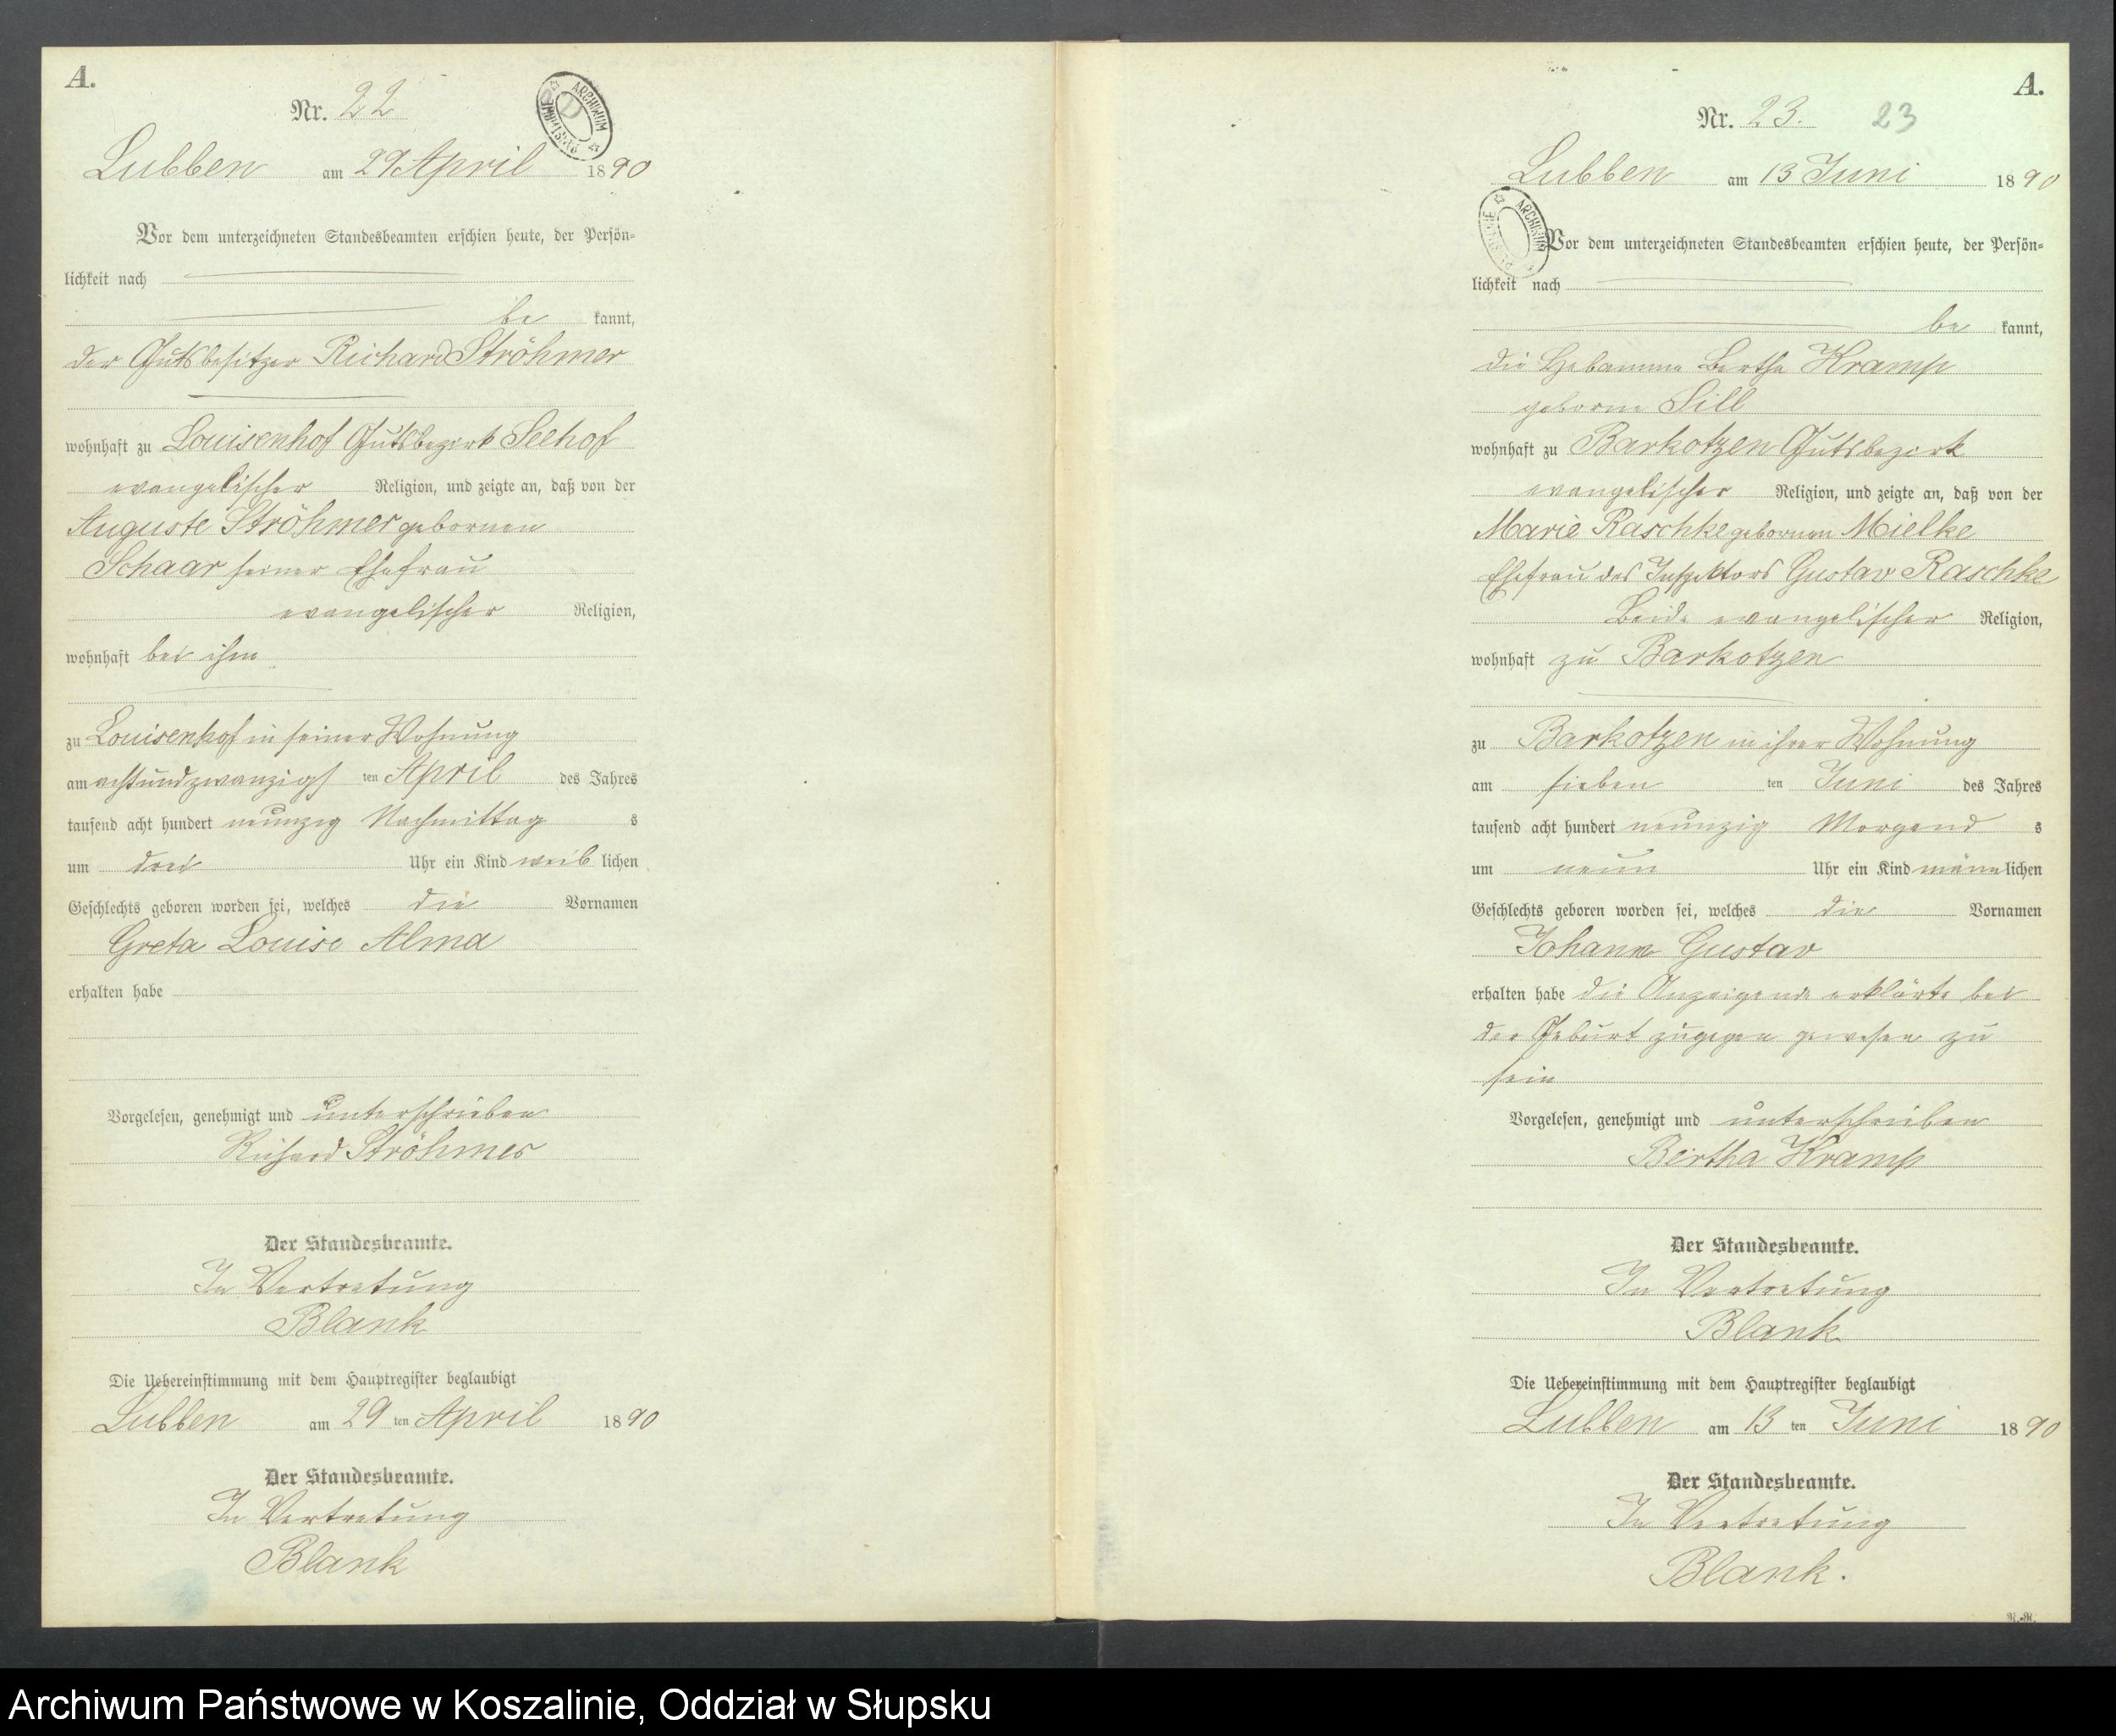 A.
Nr. 22
ARCHIWUM
Lubben am 29 April 1890
Vor dem unterzeichneten Standesbeamten erschien heute, der Persön-
lichkeit nach
be kannt,
der Gutsbesitzer Richard Ströhmer
wohnhaft zu Louisenhof Gutsbezirk Seehof
evangelischer Religion, und zeigte an, daß von der
Auguste Ströhmer gebornen
Schaar seiner Ehefrau
evangelischer Religion,
wohnhaft bei ihm
zu Louisenhof in seiner Wohnung
am achtundzwanzigs ten April des Jahres
tausend acht hundert neunzig Nachmittag s
um drei Uhr ein Kind weib lichen
Geschlechts geboren worden sei, welches die Vornamen
Greta Louise Alma
erhalten habe
Vorgelesen, genehmigt und unterschrieben
Richard Ströhmer
Der Standesbeamte.
In Vertretung
Blank
Die Uebereinstimmung mit dem Hauptregister beglaubigt
Lubben am 29 ten April 1890
Der Standesbeamte.
In Vertretung
Blank
A.
Nr. 23. 23
Lubben am 13 Juni 1890
ARCHIWUM
Vor dem unterzeichneten Standesbeamten erschien heute, der Persön-
lichkeit nach
be kannt,
die Hebamme Bertha Kramp
geborne Sill
wohnhaft zu Barkotzen Gutsbezirk
evangelischer Religion, und zeigte an, daß von der
Marie Raschke gebornen Mielke
Ehefrau des Inspektors Gustav Raschke
Beide evangelischer Religion,
wohnhaft zu Barkotzen
zu Barkotzen in ihrer Wohnung
am sieben ten Juni des Jahres
tausend acht hundert neunzig Morgend s
um neun Uhr ein Kind männ lichen
Geschlechts geboren worden sei, welches die Vornamen
Johann Gustav
erhalten habe die Anzeigende erklärte bei
der Geburt zugegen gewesen zu
sein
Vorgelesen, genehmigt und unterschrieben
Bertha Kramp
Der Standesbeamte.
In Vertretung
Blank
Die Uebereinstimmung mit dem Hauptregister beglaubigt
Lubben am 13 ten Juni 1890
Der Standesbeamte.
In Vertretung
Blank.
Archiwum Państwowe w Koszalinie, Oddział w Słupsku